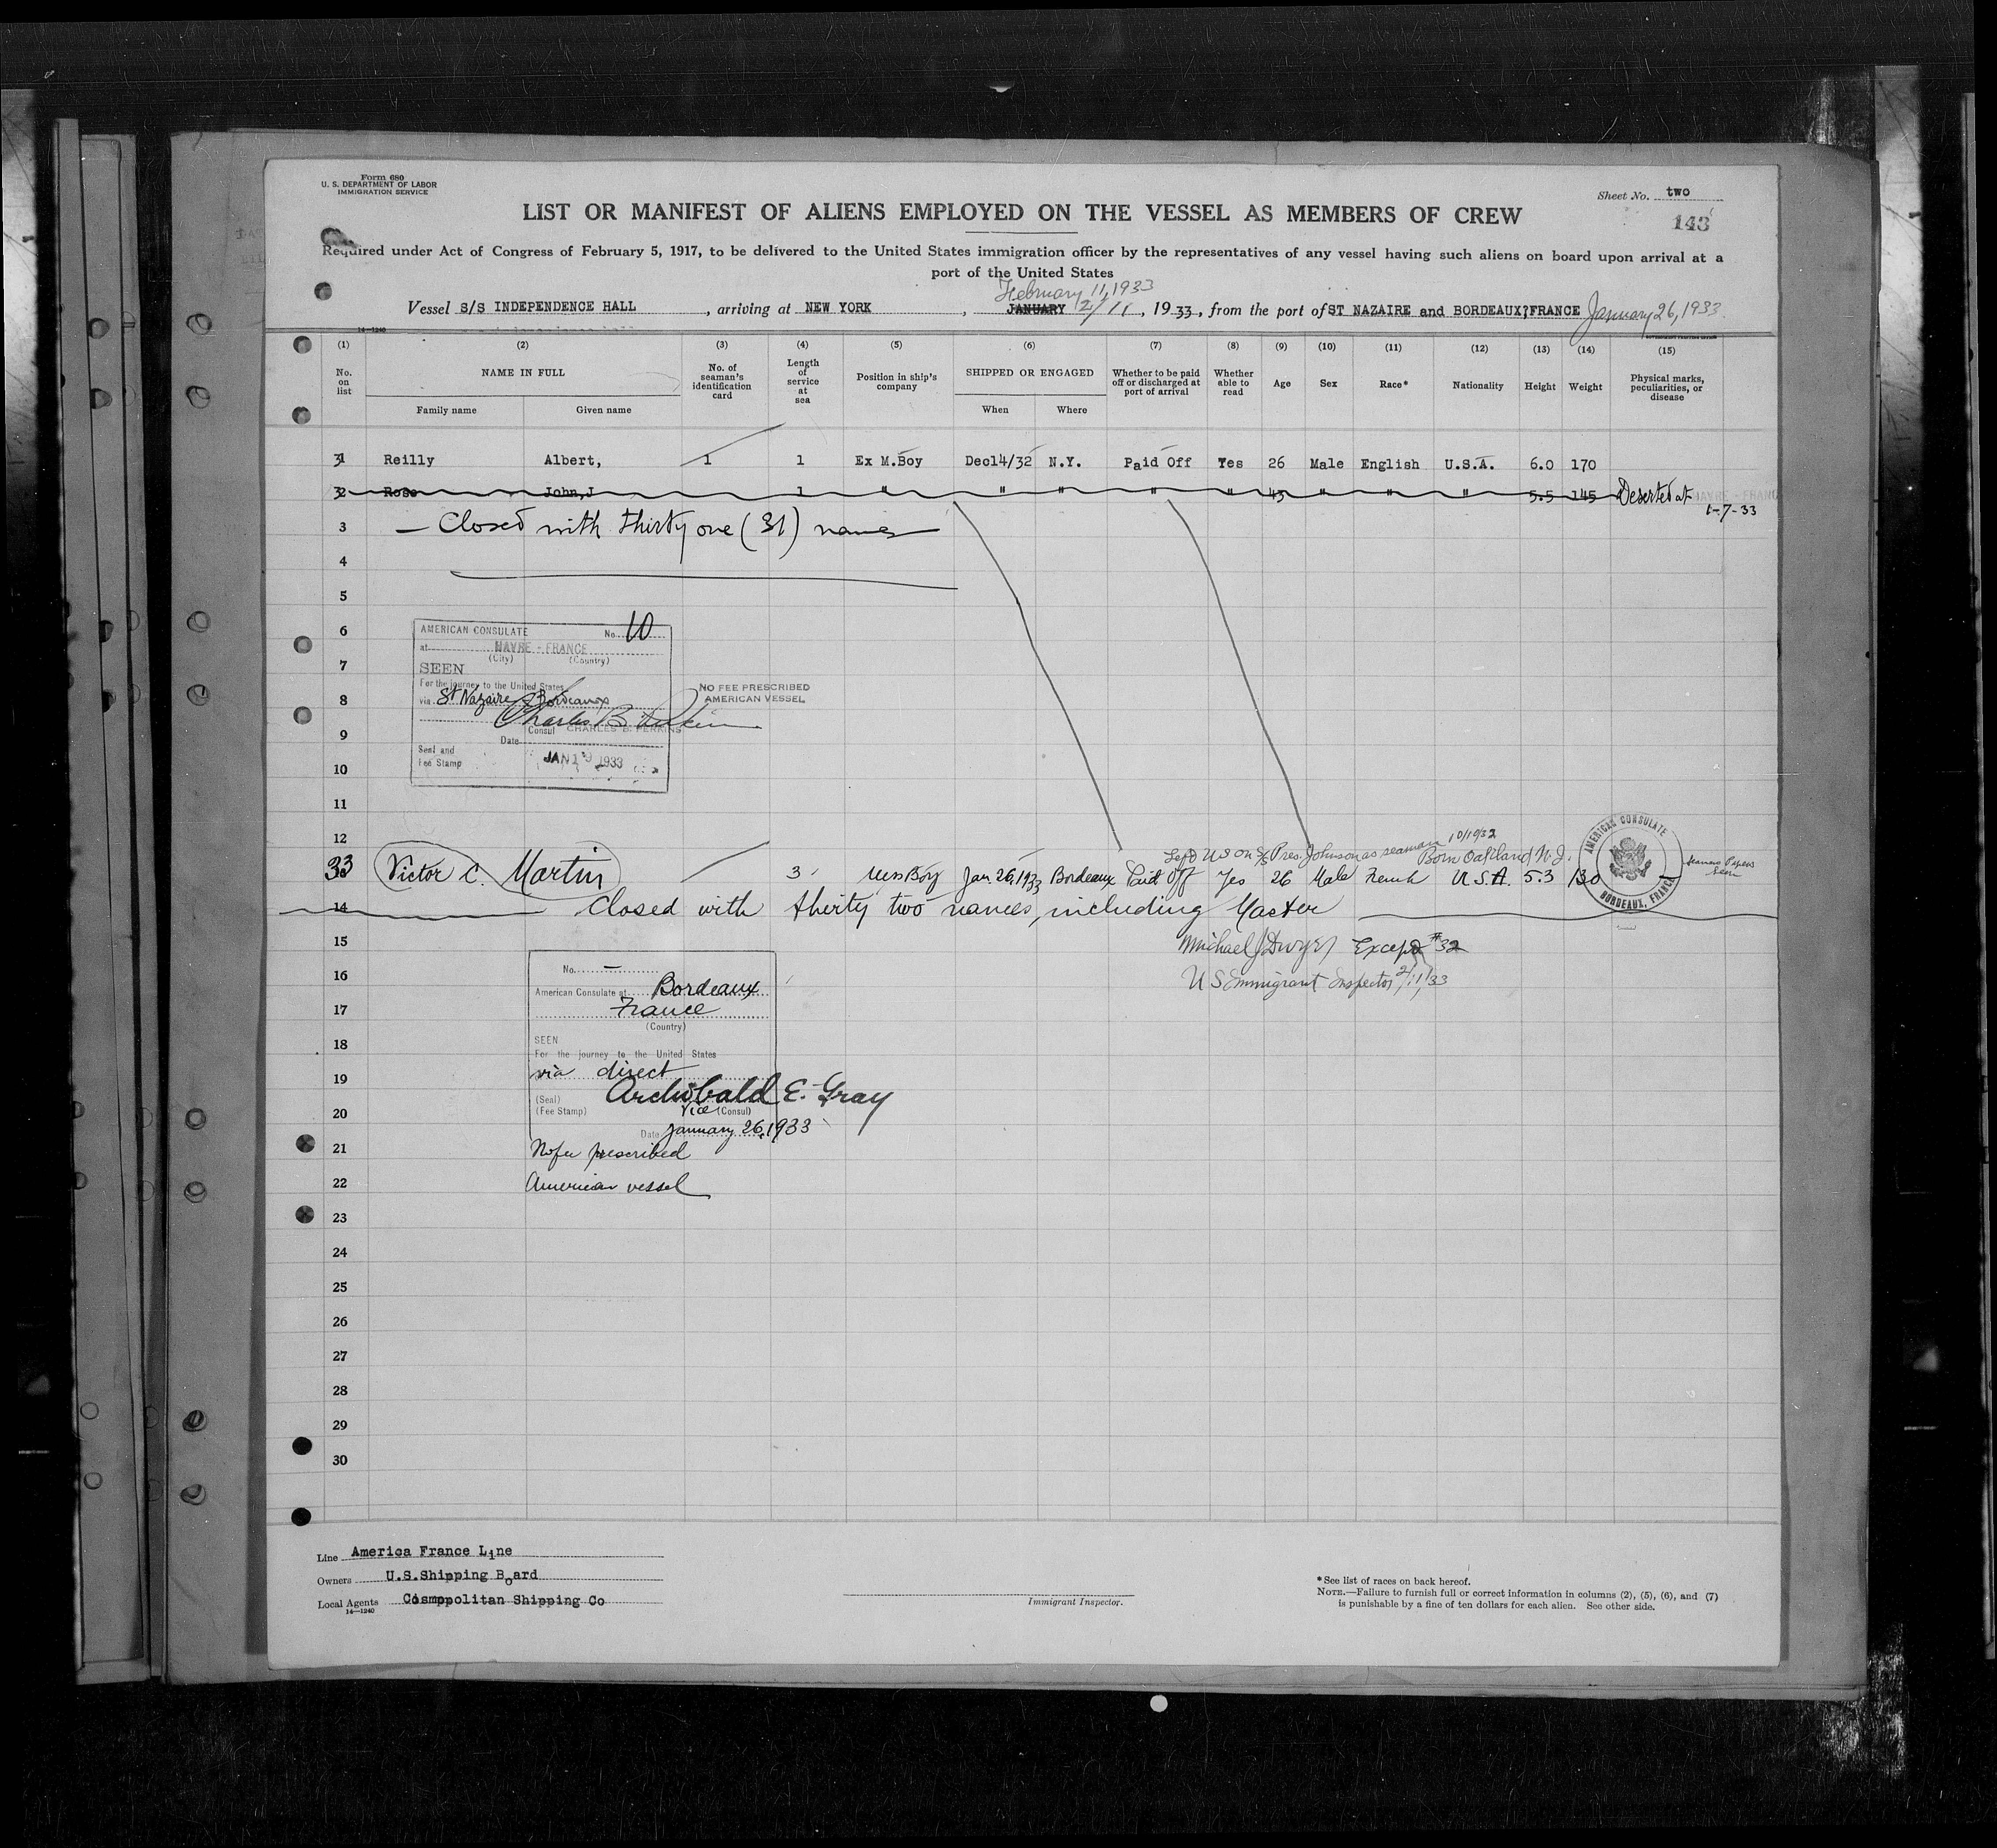 Form 680
U. S. DEPARTMENT OF LABOR
IMMIGRATION SERVICE
Sheet No. two
143
LIST OR MANIFEST OF ALIENS EMPLOYED ON THE VESSEL AS MEMBERS OF CREW
Required under Act of Congress of February 5, 1917, to be delivered to the United States immigration officer by the representatives of any vessel having such aliens on board upon arrival at a
port of the United States
February 11, 1933
Vessel S/S INDEPENDENCE HALL, arriving at NEW YORK, JANUARY 2/11, 1933, from the port of ST NAZAIRE and BORDEAUX, FRANCE January 26, 1933.
14—1240
(1) (2) (3) (4) (5) (6) (7) (8) (9) (10) (11) (12) (13) (14) (15)
No. on list NAME IN FULL Family name Given name No. of seaman's identification card Length of service at sea Position in ship's company SHIPPED OR ENGAGED When Where Whether to be paid off or discharged at port of arrival Whether able to read Age Sex Race* Nationality Height Weight Physical marks, peculiarities, or disease
31 Reilly Albert, 1 1 Ex M.Boy Dec14/32 N.Y. Paid Off Yes 26 Male English U.S.A. 6.0 170
32 Rose John,J 1 " " " " " 43 " " " 5.5 145 Deserted at HAVRE - FRANC
1-7-33
3 — Closed with thirty one (31) names
4
5
6
7
8
9
10
11
12
AMERICAN CONSULATE No. 10
at HAVRE - FRANCE
(City) (Country)
SEEN
For the journey to the United States
via St Nazaire & Bordeaux
NO FEE PRESCRIBED
AMERICAN VESSEL
Charles B. Perkins
Consul CHARLES B. PERKINS
Date
Seal and
Fee Stamp
JAN 19 1933
Left US on S/S Pres. Johnson as seaman 10/10/32
Born Oakland N.J.
33 Victor C. Martin 3 Mess Boy Jan. 26, 1933 Bordeaux Paid Off Yes 26 Male French U.S.A. 5.3 130
AMERICAN CONSULATE
BORDEAUX, FRANCE
Seamans Papers
Seen
14 Closed with thirty two names, including Master
15 Michael J Dwyer Except #32
16 US Immigrant Inspector 2/11/33
No. —
American Consulate at Bordeaux
17 France
(Country)
18 SEEN
For the journey to the United States
19 via direct
(Seal) Archibald E. Gray
20 (Fee Stamp) Vice (Consul)
Date January 26, 1933
21 No fee prescribed
22 American vessel
23
24
25
26
27
28
29
30
Line America France Line
Owners U.S.Shipping Board
Local Agents Cosmopolitan Shipping Co
14—1240
Immigrant Inspector.
*See list of races on back hereof.
NOTE.—Failure to furnish full or correct information in columns (2), (5), (6), and (7)
is punishable by a fine of ten dollars for each alien. See other side.